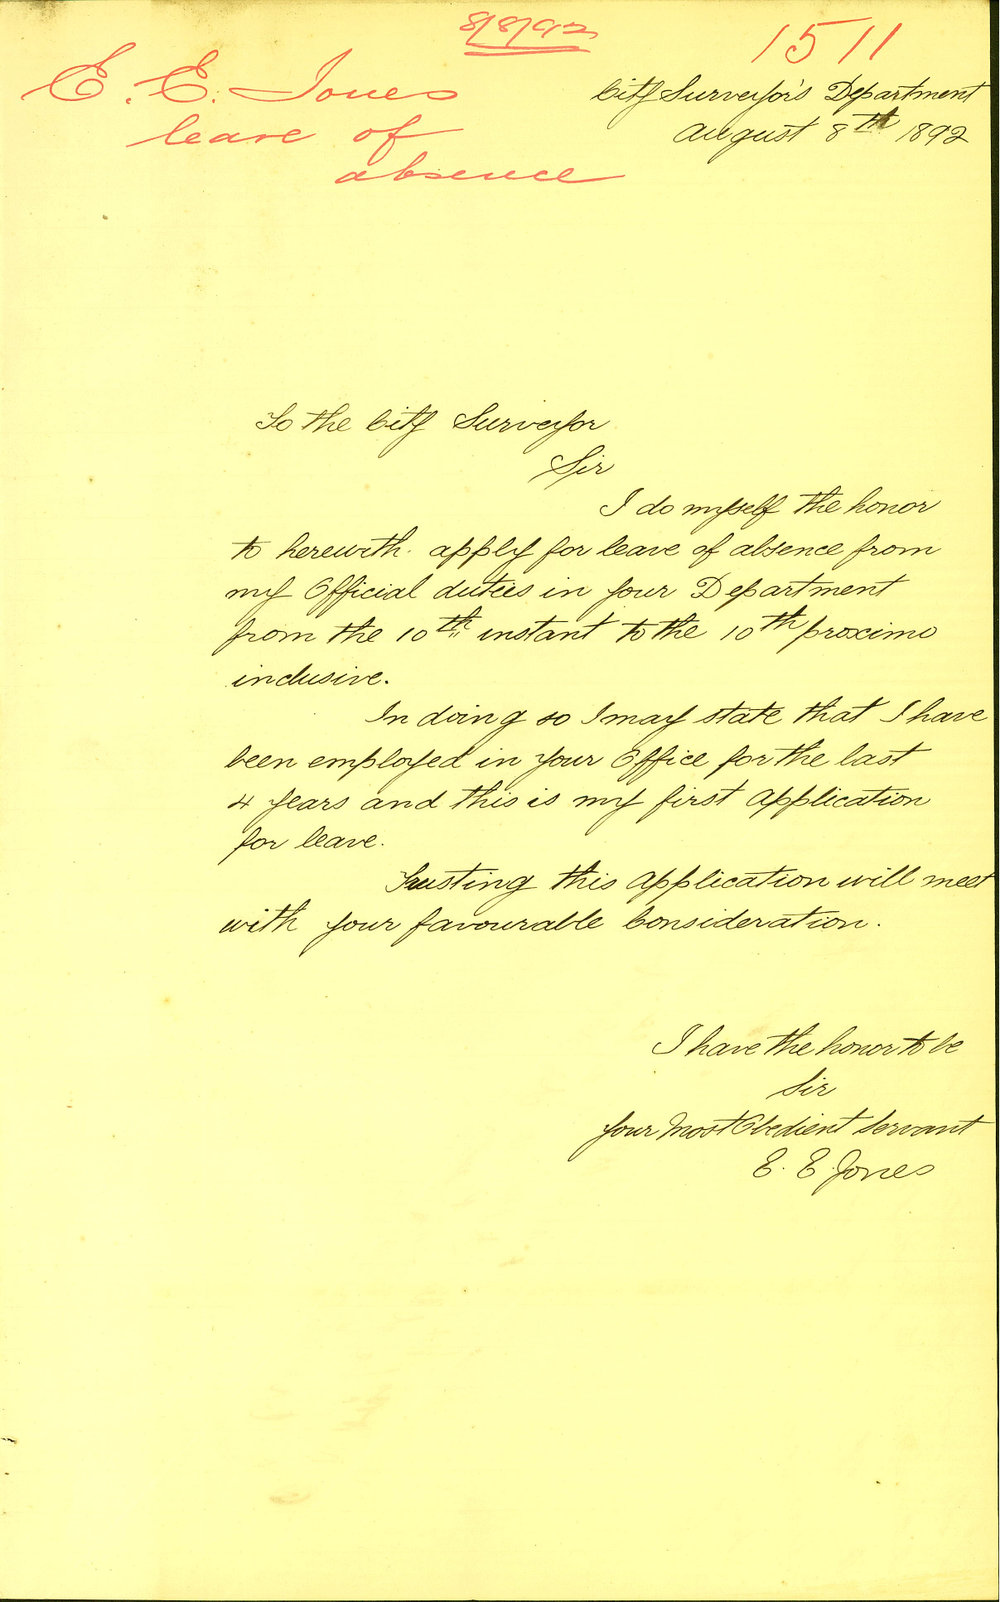 8/8/92
1511
E. E. Jones
leave of
absence
City Surveyor's Department
August 8th 1892
To the City Surveyor
Sir
I do myself the honor
to herewith apply for leave of absence from
my Official duties in your Department
from the 10th instant to the 10th proximo
inclusive.
In doing so I may state that I have
been employed in your Office for the last
4 years and this is my first Application
for leave.
Trusting this Application will meet
with your favourable Consideration.
I have the honor to be
Sir
Your Most Obedient Servant
E. E. Jones